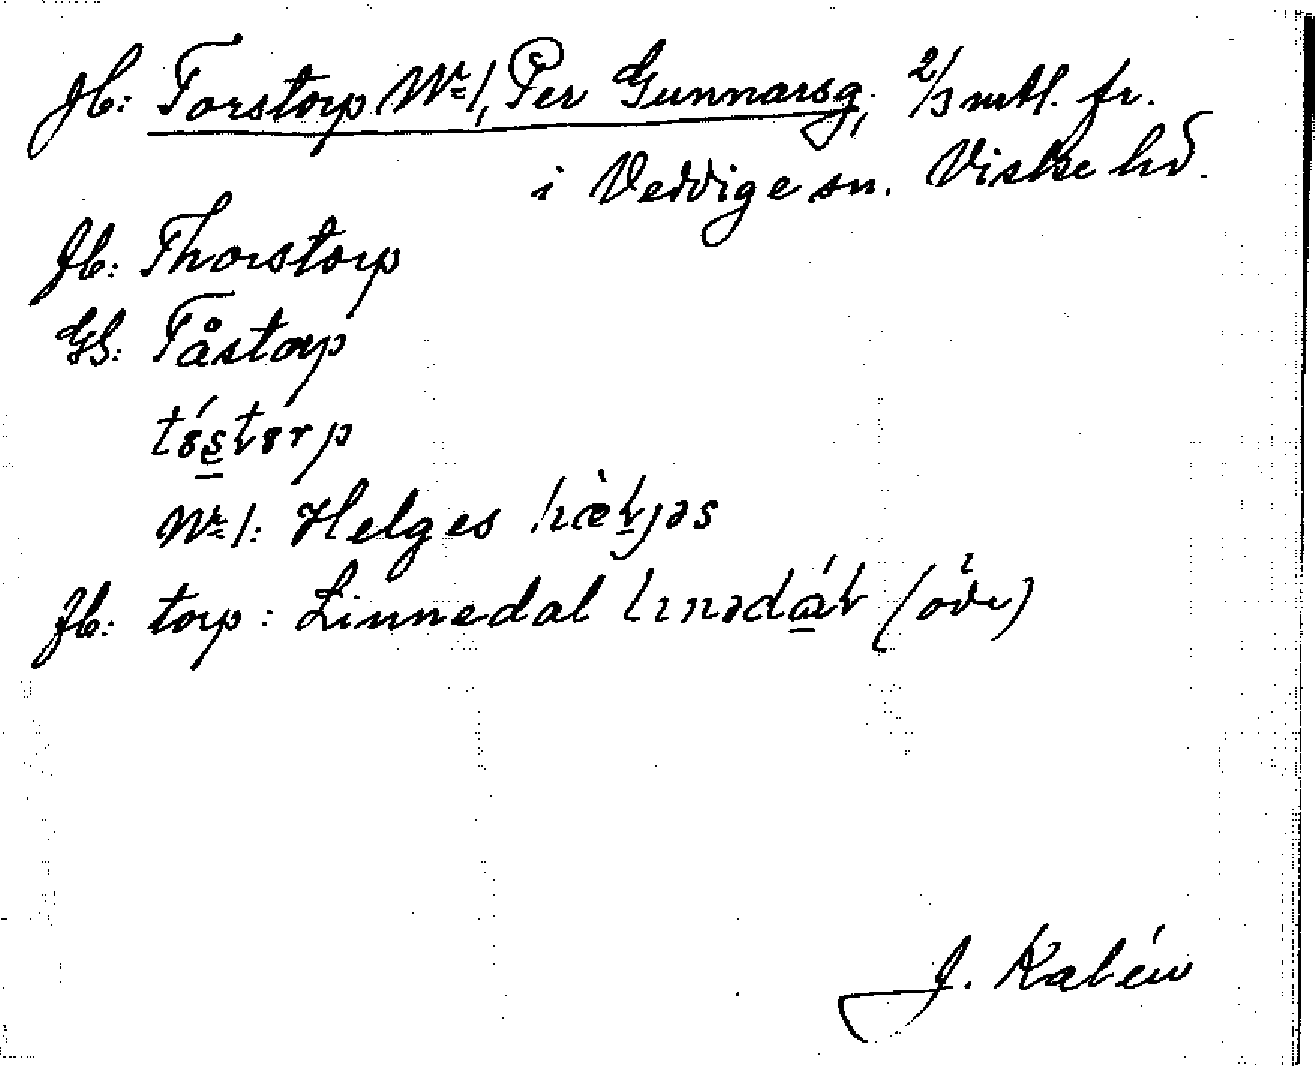 Jb: Torstorp Nr 1, Per Gunnarsg, 2/3 mtl. fr.
i Veddige sn. Viske hd.
Jb: Thorstorp
GS: Tåstorp
tóstorp
Nr 1: Helges
Jb: torp: Linnedal (öde)
J. Kalén